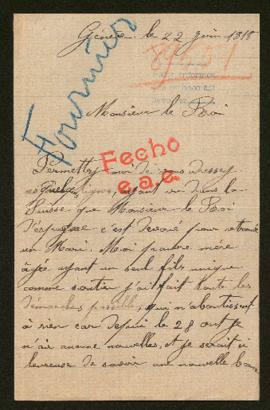 le 22 juin 1918
Fournier
Monsieur le Roi
Fecho
e.a.e.
Permettez moi de vous adresser
ces quelques lignes, ayant vu dans la
Suisse que Monsieur le Roi
d'Espagne c'est devoué pour retrouver
un Mari. Moi pauvre mère
âgée ayant un seul fils unique
comme soutien j'ai fait toute les
démarches possible, qui n'aboutissent
à rien car depuis le 28 août je
n'ai aucune nouvelles, et je serait si
heureuse de savoir une nouvelle